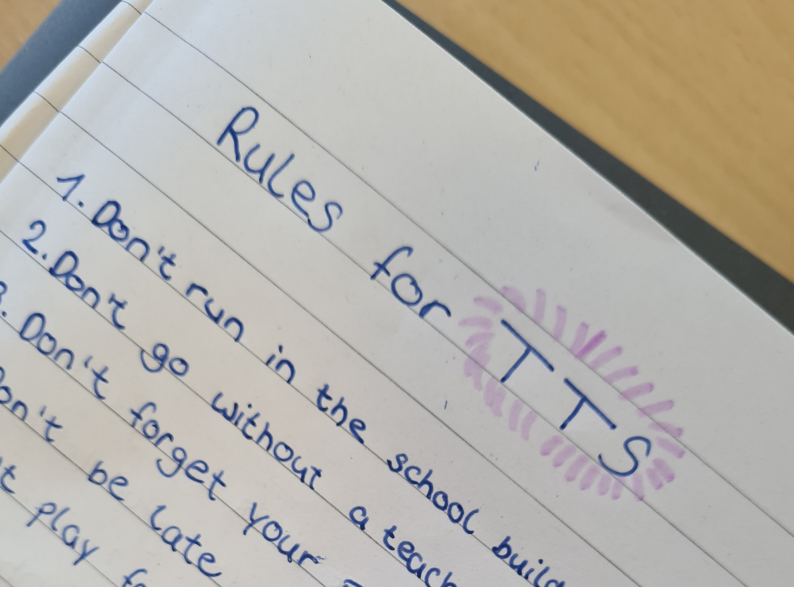 Rules for TTS
1. Don't run in the school
2. Don't go without a
. Don't forget your
be late
play